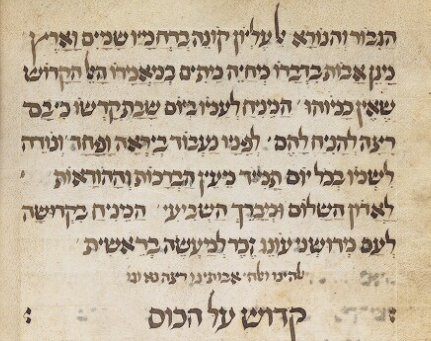 הגבור והנורא ﭏ עליון קונה ברחמיו שמים וארץ
מגן אבות בדברו מחיה מתים במאמרו הﭏ הקדוש
שאין כמוהו המניח לעמו ביום שבת קדשו כי בם
רצה להניח להם לפניו נעבוד ביראה ופחד ונודה
לשמו בכל יום תמיד מעין הברכות וההודאות
לאדון השלום ומברך השביעי המניח בקדושה
לעם מדושני עונג זכר למעשה בראשית
ﭏהינו וﭏהי אבותינו רצה נא
קדוש על הכוס